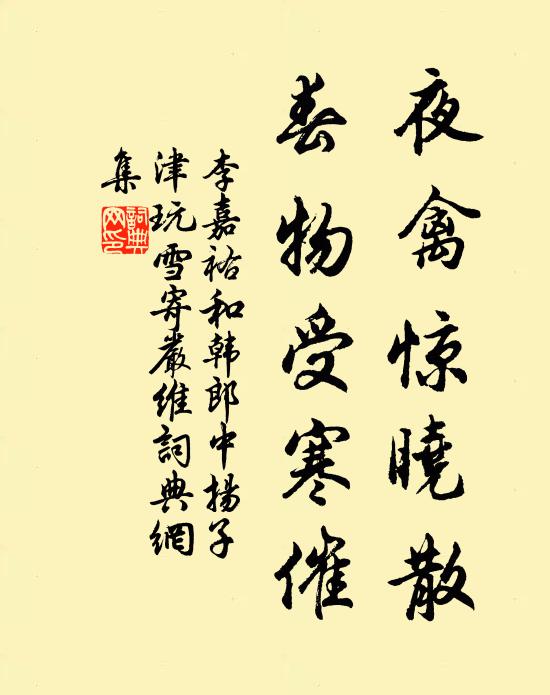 夜禽惊曉散
春物受寒催
李嘉祐和韩郎中揚子
津玩雪寄嚴維詞典網
集
詞典網印